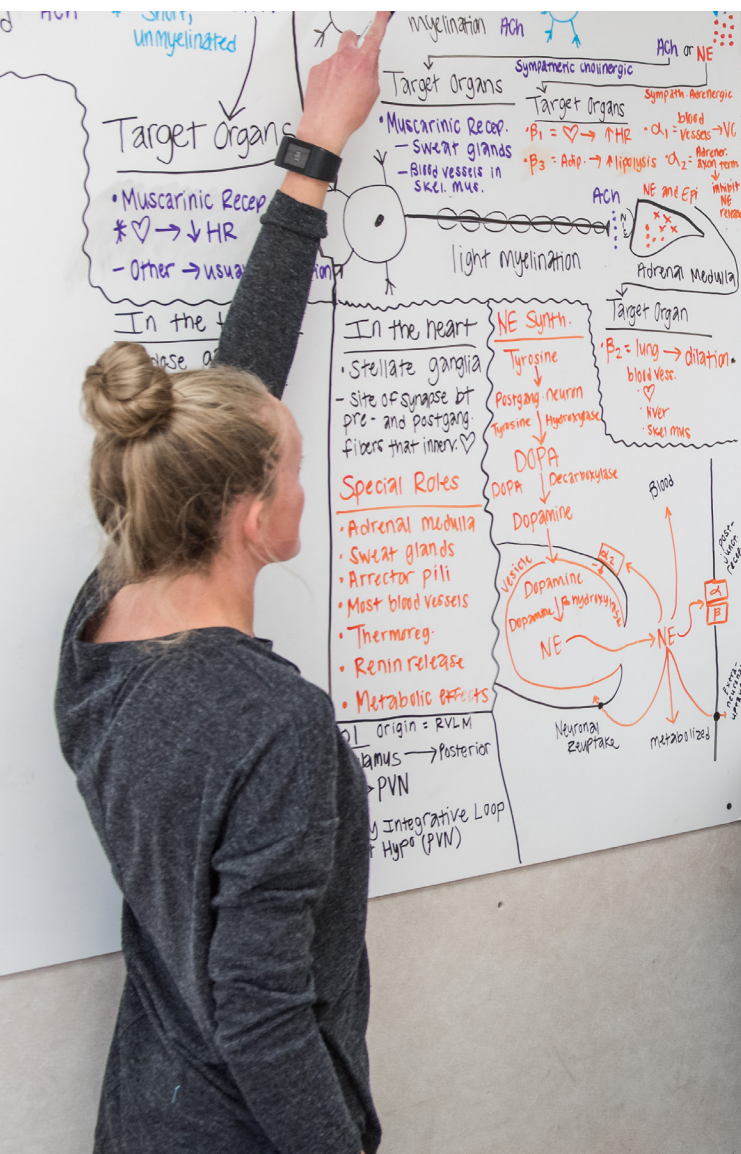 ACh * Short,
unmyelinated
Target Organs
• Muscarinic Recep.
* ♡ → ↓ HR
- Other →
In the
myelination ACh
ACh or NE
Sympathetic cholinergic
Target Organs
• Muscarinic Recep.
- Sweat glands
- Blood vessels in
skel. mus.
Sympath. Adrenergic
Target Organs
• β1 = ♡ → ↑ HR
• β3 = Adip. → ↑ lipolysis
• α1 = blood vessels → VC
• α2 = Adrener. axon term
↓
inhibit
NE
release
ACh
NE and Epi
light myelination
Adrenal Medulla
Target Organ
• β2 = lung → dilation
blood vess.
• ♡
• liver
• skel mus
In the heart
• Stellate ganglia
- Site of synapse bt
pre- and postgang.
fibers that innerv. ♡
Special Roles
• Adrenal medulla
• Sweat glands
• Arrector pili
• Most blood vessels
• Thermoreg.
• Renin release
• Metabolic effects
NE Synth.
Tyrosine
↓
Postgang. neuron
Tyrosine ↓ Hydroxylase
DOPA
DOPA ↓ Decarboxylase
Dopamine
Vesicle
α2
Dopamine
Dopamine ↓ β hydroxylase
NE → NE
Blood
post-
junc
recep
α
β
Neuronal
Reuptake
metabolized
Extra-
neuronal
uptake
Origin = RVLM
→ Posterior
→ PVN
Integrative Loop
Hypo (PVN)